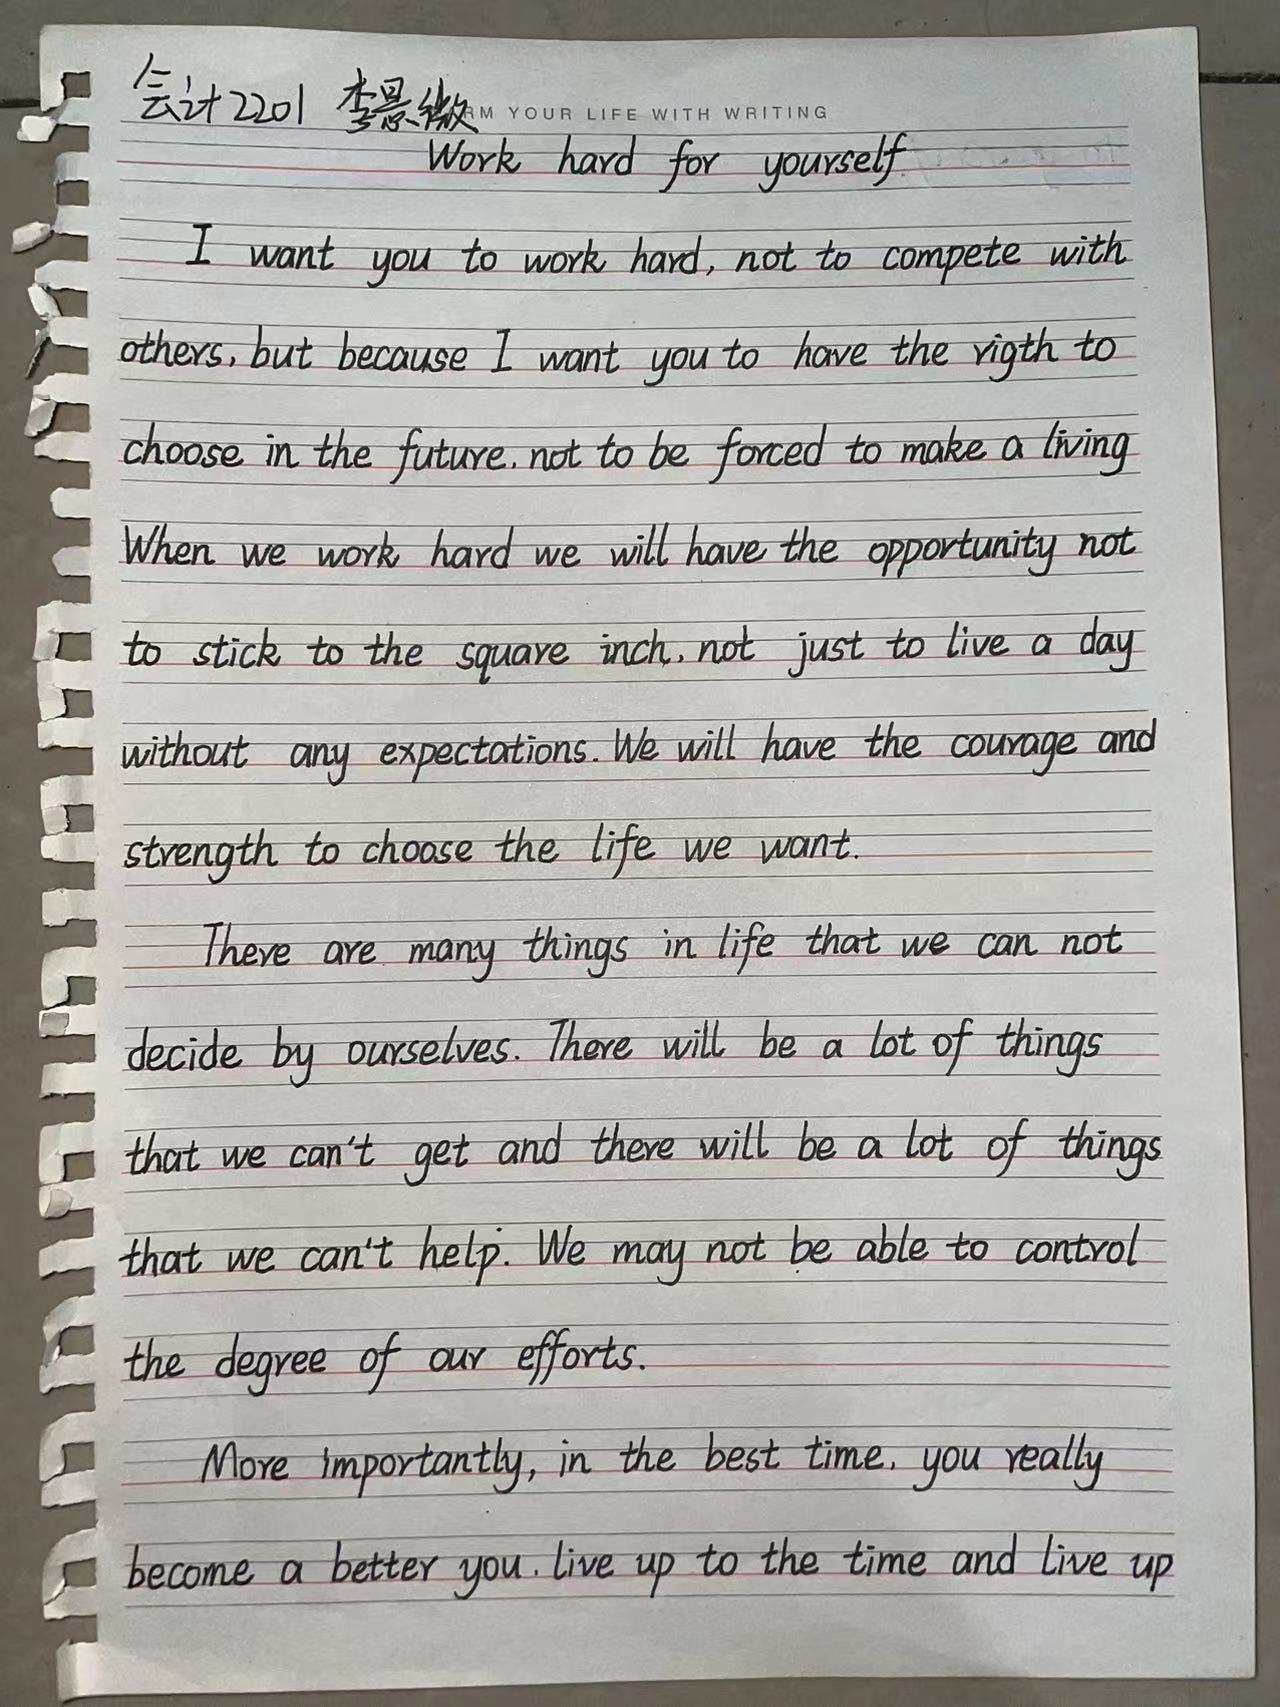 会计2201 李景微
RM YOUR LIFE WITH WRITING
Work hard for yourself
I want you to work hard, not to compete with
others, but because I want you to have the rigth to
choose in the future, not to be forced to make a living
When we work hard we will have the opportunity not
to stick to the square inch, not just to live a day
without any expectations. We will have the courage and
strength to choose the life we want.
There are many things in life that we can not
decide by ourselves. There will be a lot of things
that we can't get and there will be a lot of things
that we can't help. We may not be able to control
the degree of our efforts.
More importantly, in the best time, you really
become a better you. live up to the time and live up